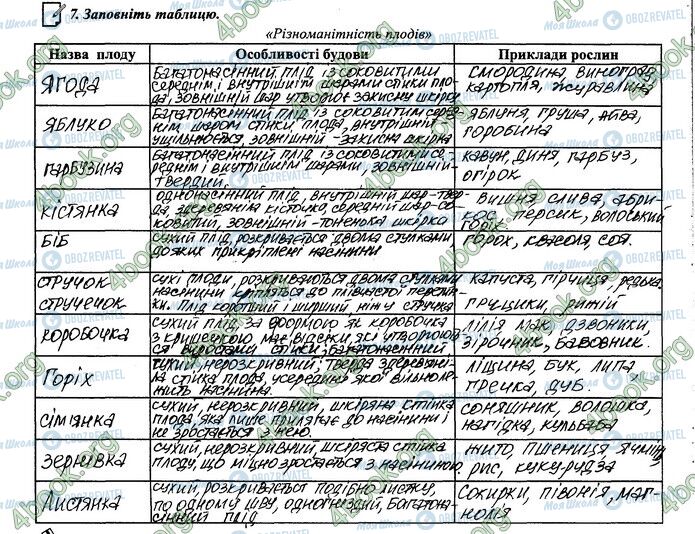 7. Заповніть таблицю.
«Різноманітність плодів»
Назва плоду Особливості будови Приклади рослин
ЯГОДА
Багатонасінний плід із соковитими
середнім і внутрішнім шарами стінки пло-
да, зовнішній шар утворює захисну шкірку
Смородина, виноград,
картопля, журавлина
ЯБЛУКО
Багатонасінний плід із соковитим серед-
нім шаром стінки плода, внутрішній
ущільнюється, зовнішній - захисна шкірка
Яблуня, груша, айва,
горобина
ГАРБУЗИНА
Багатонасінний плід із соковитими се-
реднім і внутрішнім шарами, зовнішній -
твердий.
Кавун, диня, гарбуз,
огірок
КІСТЯНКА
Однонасінний плід, внутрішній шар - твер-
да, здерев'яніла кісточка, середній шар - со-
ковитий, зовнішній - тоненька шкірка
Вишня, слива, абри-
кос, персик, волоський
горіх
БІБ
Сухий плід, розкривається двома стулками,
до яких прикріплені насінини
Горох, квасоля, соя.
СТРУЧОК
СТРУЧЕЧОК
Сухі плоди, розкриваються двома стулками
насінини кріпляться до плівчастої перетин-
ки. Плід коротший і ширший, ніж у стручка
Капуста, гірчиця, редька
Грицики,
КОРОБОЧКА
Сухий плід, за формою як коробочка
з кришечкою, має відсіки, які утворюють-
ся виростами стінки. Багатонасінний
Лілія, мак, дзвоники,
зірочник, бавовник.
ГОРІХ
Сухий, нерозкривний, тверда здерев'яні-
ла стінка плода, усередині якої вільно ле-
жить насінина.
Ліщина, бук, липа,
гречка, дуб.
СІМ'ЯНКА
Сухий, нерозкривний, шкіряста стінка
плода, яка лише прилягає до насінини і
не зростається з нею.
Соняшник, волошка,
нагідка, кульбаба
ЗЕРНІВКА
Сухий, нерозкривний, шкіряста стінка
плоду, що міцно зростається з насіниною
Жито, пшениця, ячмінь,
рис, кукурудза
ЛИСТЯНКА
Сухий, розкривається подібно листку,
по одному шву, одногніздий, багатона-
сінний плід
Сокирки, півонія, маг-
нолія